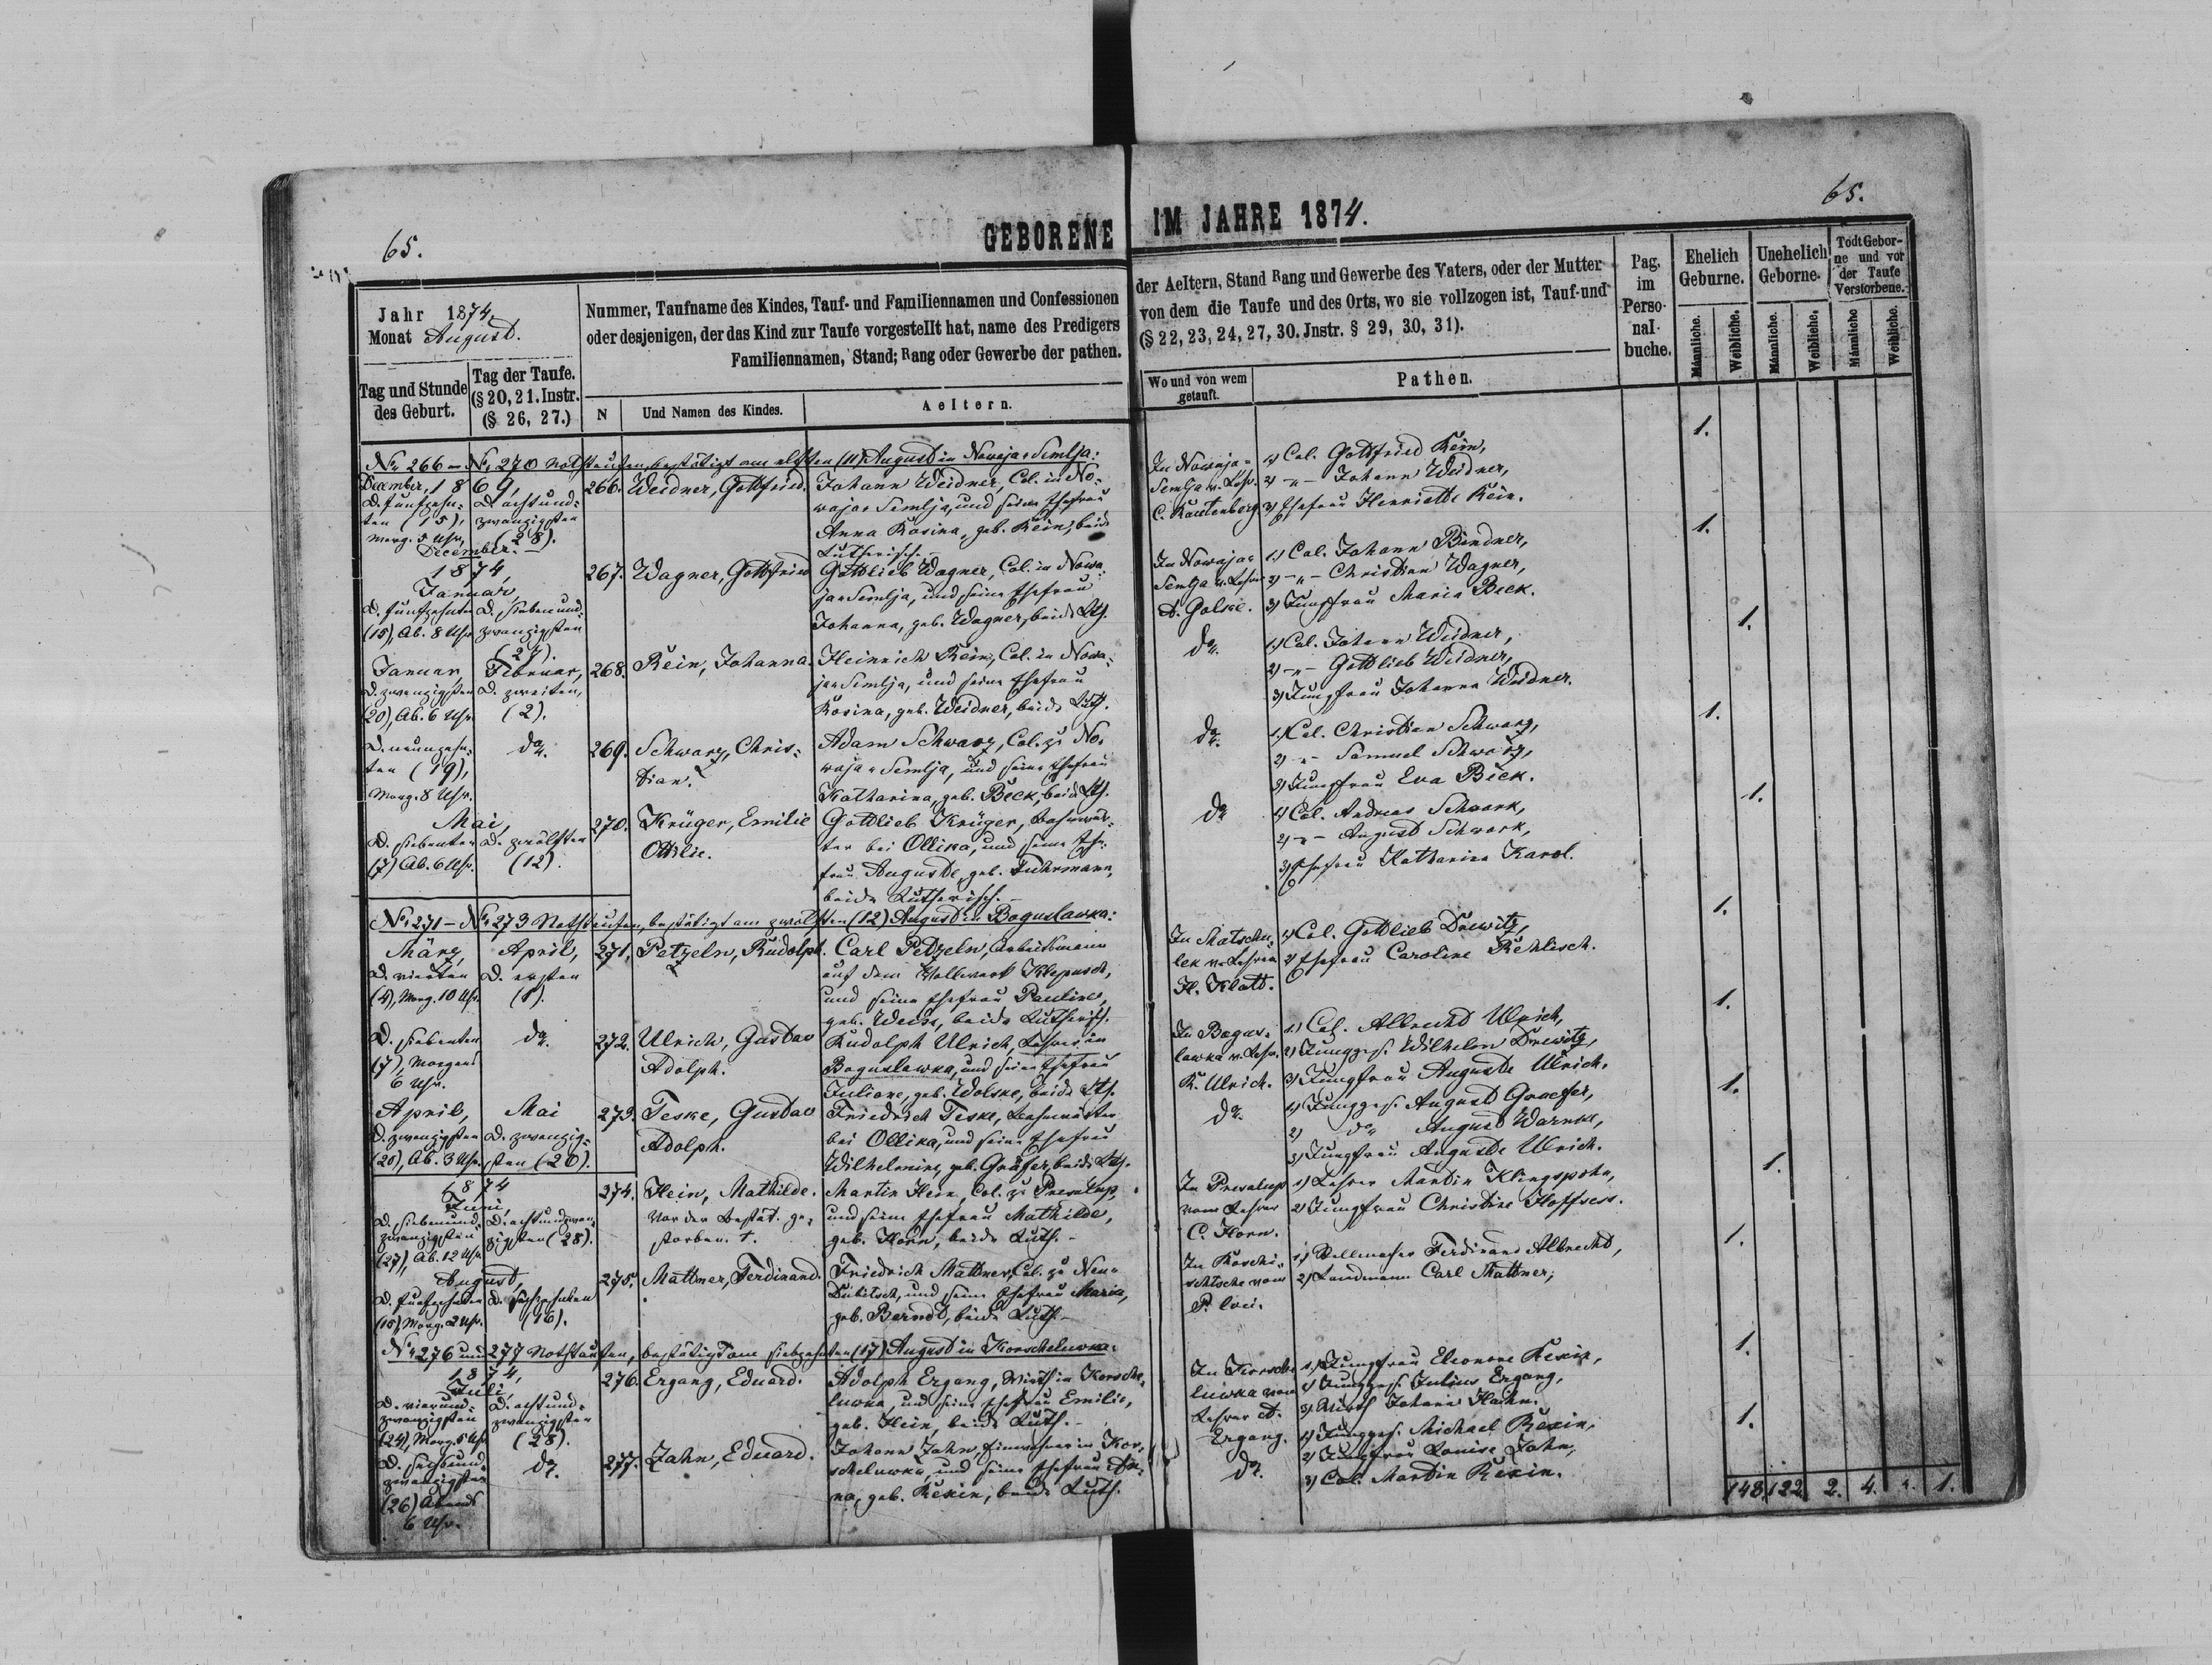 65.
GEBORENE
Jahr 1874.
Monat August.
Nummer, Taufname des Kindes, Tauf- und Familiennamen und Confessionen
oder desjenigen, der das Kind zur Taufe vorgestellt hat, name des Predigers
Familiennamen, Stand; Rang oder Gewerbe der pathen.
Tag und Stunde
des Geburt.
Tag der Taufe.
(§ 20, 21. Instr.
(§ 26, 27.)
N
Und Namen des Kindes.
Aeltern.
No 266 – No 270 Nothtaufen, bestätigt am elften (11) August in Nowaja-Semlja:
December, 1869,
D. funfzehn-
ten (15),
Morg. 5 Uhr,
D. achtund-
zwanzigsten
(28).
December.
266.
Weidner, Gottfried.
Johann Weidner, Col. in No-
waja-Semlja, und seine Ehefrau
Anna Rosina, geb. Rein, beide
Lutherisch.
1874,
Januar,
D. funfzehnten
(15), Ab. 8 Uhr
D. siebenund-
zwanzigsten
(27).
267.
Wagner, Gottfried
Gottlieb Wagner, Col. in Nowa-
ja-Semlja, und seine Ehefrau
Johanna, geb. Wagner, beide Lth.
Januar,
D. zwanzigsten
(20), Ab. 6 Uhr.
Februar,
D. zweiten,
(2).
268.
Rein, Johanna.
Heinrich Rein, Col. in Nowa-
ja-Semlja, und seine Ehefrau
Rosina, geb. Weidner, beide Lth.
D. neunzehn-
ten (19),
Morg. 8 Uhr.
do.
269.
Schwarz, Chris-
tian.
Adam Schwarz, Col. zu No-
waja-Semlja, und seine Ehefrau
Katharina, geb. Beck, beide Lth.
Mai,
D. siebenten
(7) Ab. 6 Uhr.
D. zwölften
(12).
270.
Krüger, Emilie
Ottilie.
Gottlieb Krüger, Bahnwär-
ter bei Ollika, und seine Ehe-
frau Auguste, geb. Fuhrmann,
beide Lutherisch.
No 271 – No 273 Nothtaufen, bestätigt am zwölften (12) August in Boguslawka:
März,
D. vierten
(4), Morg. 10 Uhr.
April,
D. ersten
(1).
271.
Petzeln, Rudolph.
Carl Petzeln, Arbeitsmann
auf dem Vollwerk Klepusch,
und seine Ehefrau Pauline,
geb. Weiss, beide Lutherisch.
D. siebenten
(7), Morgens
6 Uhr.
do.
272.
Ulrich, Gustav
Adolph.
Rudolph Ulrich, Lehrer in
Boguslawka, und seine Ehefrau
Juliane, geb. Wolske, beide Lth.
April,
D. zwanzigsten
(20), Ab. 3 Uhr.
Mai
D. zwanzig-
sten (20).
273.
Teske, Gustav
Adolph.
Friedrich Teske, Bahnwärter
bei Ollika, und seine Ehefrau
Wilhelmine, geb. Gräfer, beide Lth.
1874
Juni,
D. siebenund-
zwanzigsten
(27), Ab. 12 Uhr
D. achtundzwan-
zigsten (28).
274.
Hein, Mathilde.
Vor der Bestät. ge-
storben. †.
Martin Hein, Col. zu Prewalup,
und seine Ehefrau Mathilde,
geb. Horn, beide Luth. –
August,
D. funfzehnten
(15), Morg. 2 Uhr.
D. sechzehnten
(16).
275.
Mattner, Ferdinand.
Friedrich Mattner, Col. zu Neu-
Dubitsch, und seine Ehefrau Maria,
geb. Berndt, beide Luth. –
No 276 und 277 Nothtaufen, bestätigt am siebzehnten (17) August in Korscheluwka:
1874,
Juli,
D. vierund-
zwanzigsten
(24), Morg. 5 Uhr
D. achtund-
zwanzigsten
(28).
276.
Ergang, Eduard.
Adolph Ergang, Wirth in Korsche-
luwka, und seine Ehefrau Emilie,
geb. Hein, beide Luth. –
D. sechsund-
zwanzigsten
(26) Abends
6 Uhr.
do.
277.
Zahn, Eduard.
Johann Zahn, Einwohner in Kor-
scheluwka, und seine Ehefrau An-
na, geb. Rexin, beide Luth.
65.
IM JAHRE 1874.
der Aeltern, Stand Rang und Gewerbe des Vaters, oder der Mutter
von dem die Taufe und des Orts, wo sie vollzogen ist, Tauf-und
(§ 22, 23, 24, 27, 30. Jnstr. § 29, 30, 31).
Wo und von wem
getauft.
Pathen.
Pag.
im
Perso-
nal-
buche.
Ehelich
Geburne.
Unehelich
Geborne.
Todt Gebor-
ne und vor
der Taufe
Verstorbene.
Männliche.
Weibliche.
Männliche.
Weibliche.
Männliche
Weibliche.
In Nowaja-
Semlja v. Lehr.
C. Rautenberg
1) Col. Gottfried Rein,
2) -"- Johann Weidner,
3) Ehefrau Henriette Rein.
1.
In Nowaja-
Semlja v. Lehrer
A. Golske.
1.) Col. Johann Bindner,
2) -"- Christian Wagner,
3) Jungfrau Maria Beck.
1.
do.
1.) Col. Johann Weidner,
2) -"- Gottlieb Weidner,
3) Jungfrau Johanna Weidner.
1.
do.
1.) Col. Christian Schwarz,
2) -"- Samuel Schwarz,
3) Jungfrau Eva Beck.
1.
do
1) Col. Andreas Schwark,
2) -"- August Schwark,
3) Ehefrau Katharina Karol.
1.
In Matschu-
lek v. Lehrer
H. Klatt.
1) Col. Gottlieb Drewitz,
2) Ehefrau Caroline Rehlisch.
1.
In Bogus-
lawka v. Lehr.
R. Ulrich.
1.) Col. Albrecht Ulrich,
2) Jungges. Wilhelm Drewitz,
3) Jungfrau Auguste Ulrich.
1.
do.
1) Jungges. August Graefer,
2) do. August Warnke,
3) Jungfrau Auguste Ulrich.
1.
In Prewalup
vom Lehrer
C. Horn.
1) Lehrer Martin Klingspohn,
2) Jungfrau Christine
1.
In Roschi-
schtsche vom
P. loci.
1.) Stellmacher Ferdinand Albrecht,
2) Landmann Carl Mattner;
1.
In Korsche-
luwka vom
Lehrer A.
Ergang.
1.) Jungfrau Eleonore Rexin,
2) Jungges. Julius Ergang,
3) Wirth Johann Hahn.
1.
do.
1) Jungges. Michael Rexin,
2) Jungfrau Louise Zahn,
3) Col. Martin Rexin.
1.
148 122 2. 4. 1.